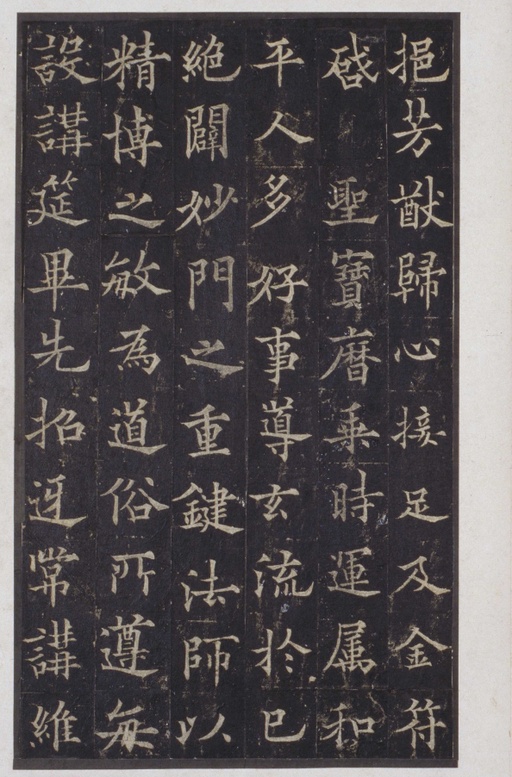 挹芳猷歸心接足及金符
啓聖寶曆乗時運属和
平人多好事導玄流於已
絶闢妙門之重鍵法師以
精博之敏為道俗所遵每
設講筵畢先招迓常講維